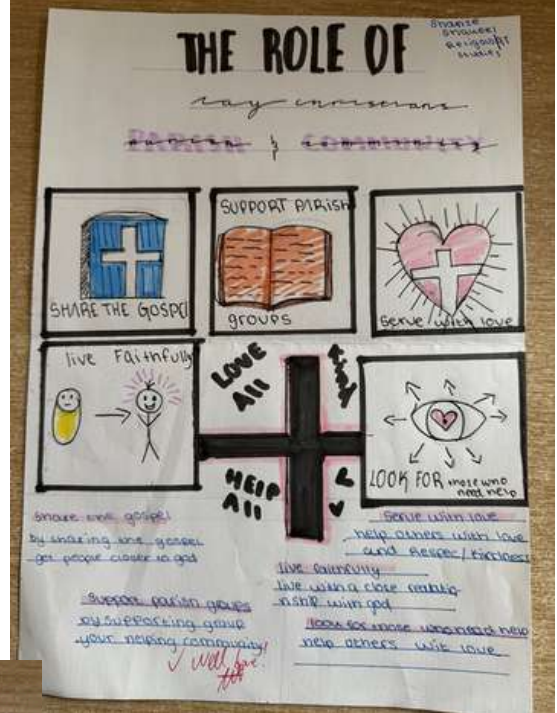 THE ROLE OF
Lay christians
PARISH & COMMUNITY
Religious
studies
SHARE THE GOSPEL
SUPPORT PARISH
groups
Serve with love
live Faithfully
LOVE
All
Kind
HELP
All
LOOK FOR those who
need help
Share the gospel
by sharing the gospel
get people closer to god
Support parish groups
by supporting group
your helping community!
Well
Serve with love
help others with love
and Respec/Kindness
live faithfully
live with a close realatio
nship with god
look for those who need help
help others wit love